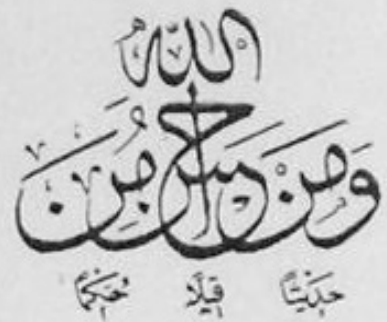 وَمَن اَحسَن مِنَ
الله
حَدِيثًا قِيلًا حُكمًا